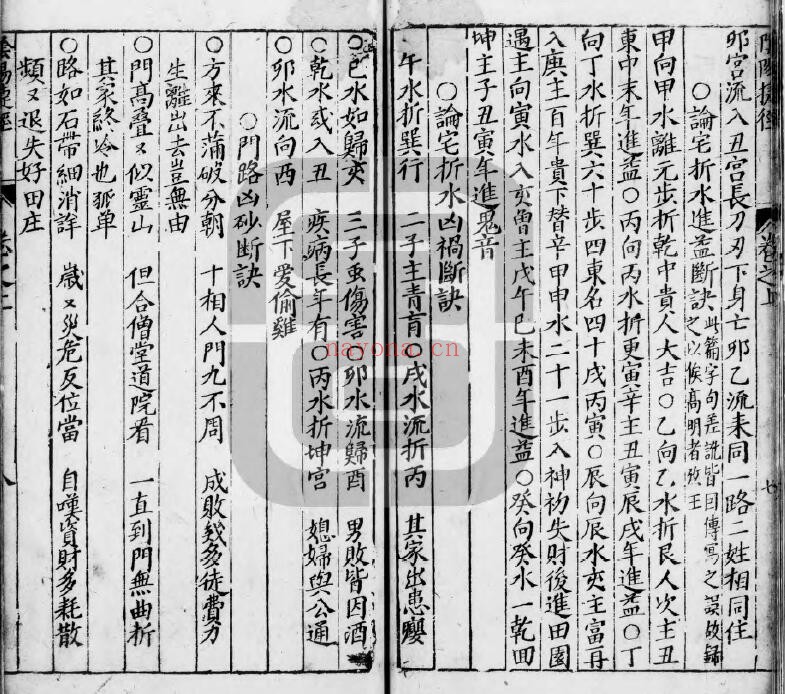 卯宮流入丑宮長刀刃下身亡卯乙流来同一路二姓相同住
○論宅折水進益断訣此篇字句差訛皆因傳寫之誤故録之以俟高明者攷正
甲向甲水離元步折乾中貴人大吉○乙向乙水折艮人次主丑
東中末年進益○丙向丙水折更寅辛主丑寅辰戌年進益○丁
向丁水折巽六十步四東名四十戌丙寅○辰向辰水亥主富再
入庚主百年貴下替辛甲申水二十一步入神初失財後進田園
遇主向寅水入亥曾主戊午巳未酉年進益○癸向癸水一乾回
坤主子丑寅年進鬼音
○論宅折水凶禍断訣
午水折巽行 二子主青盲○戌水流折丙 其家出患癭
○巳水如歸亥 三子虫傷害○卯水流歸酉 男敗皆因酒
○乾水或入丑 疾病長年有○丙水折坤宮 媳婦與公通
○卯水流向西 屋下愛偷雞
○門路凶砂断訣
○方來不蒲破分朝 十相人門九不周 成敗幾多徒費力
生離出去豈無由
○門高叠又似靈山 但合僧堂道院看 一直到門無曲折
其家終冷也孤单
○路如石帶細消詳 歲又災危反位當 自嘆資財多耗散
頻又退失好田庄
nayona.cn